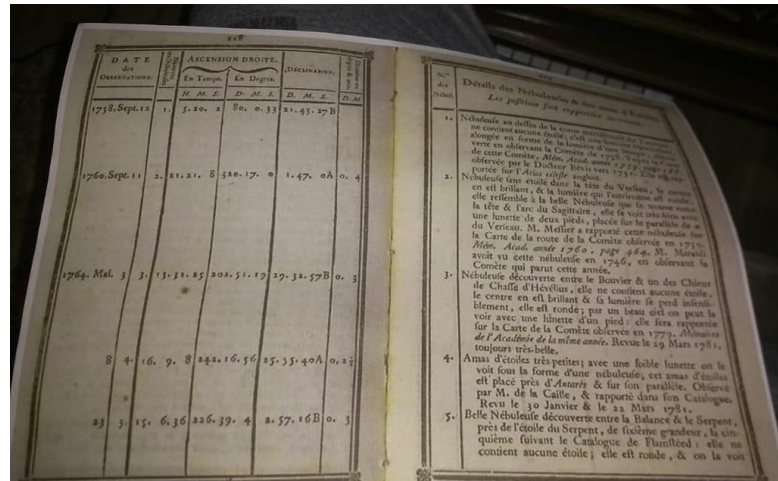 228
DATE
des
OBSERVATIONS.
ASCENSION DROITE.
En Temps. En Degrés.
DÉCLINAISON.
H. M. S. D. M. S. D. M. S. D. M.
1758. Sept. 12 1. 5. 20. 2 80. 0. 33 21. 45. 27 B
1760. Sept. 11 2. 21. 21. 8 320. 17. 0 1. 47. 0A 0. 4
1764. Mai. 3 3. 13. 31. 25 202. 51. 19 29. 32. 57B 0. 3
8 4. 16. 9. 8 242. 16. 56 25. 55. 40A 0. 2½
23 5. 15. 6. 36 226. 39. 4 2. 57. 16B 0. 3
N.os
des
Nébul.
Détails des Nébuleuses & des amas d'Étoiles.
Les positions sont rapportées
1. Nébuleuse au-dessus de la corne méridionale du Taureau,
ne contient aucune étoile; c'est une lumière blanchâtre,
alongée en forme de la lumière d'une bougie, découverte
verte en observant la Comète de 1758. Voyez la
de cette Comète, Mém. Acad. année 1759, page 188;
observée par le Docteur Bévis vers 1731. Elle est rap-
portée sur l'Atlas céleste anglois.
2. Nébuleuse sans étoile dans la tête du Verseau, le centre
en est brillant, & la lumière qui l'environne est ronde;
elle ressemble à la belle Nébuleuse qui se trouve entre
la tête & l'arc du Sagittaire, elle se voit très-bien avec
une lunette de deux pieds, placée sur le parallèle de α
du Verseau. M. Messier a rapporté cette nébuleuse sur
la Carte de la route de la Comète observée en 1759.
Mém. Acad. année 1760, page 464. M. Maraldi
avoit vu cette nébuleuse en 1746, en observant la
Comète qui parut cette année.
3. Nébuleuse découverte entre le Bouvier & un des Chiens
de Chasse d'Hévélius, elle ne contient aucune étoile,
le centre en est brillant & sa lumière se perd insensi-
blement, elle est ronde; par un beau ciel on peut la
voir avec une lunette d'un pied: elle sera rapportée
sur la Carte de la Comète observée en 1779. Mémoires
de l'Académie de la même année. Revue le 29 Mars 1781,
toujours très-belle.
4. Amas d'étoiles très-petites; avec une foible lunette on le
voit sous la forme d'une nébuleuse; cet amas d'étoiles
est placé près d'Antarès & sur son parallèle. Observé
par M. de la Caille, & rapporté dans son Catalogue.
Revu le 30 Janvier & le 22 Mars 1781.
5. Belle Nébuleuse découverte entre la Balance & le Serpent,
près de l'étoile du Serpent, de sixième grandeur, la cin-
quième suivant le Catalogue de Flamstéed: elle ne
contient aucune étoile; elle est ronde, & on la voit